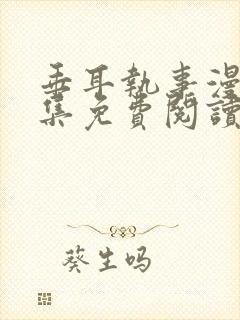 垂耳執事漫
集免費閱讀
葵生吗